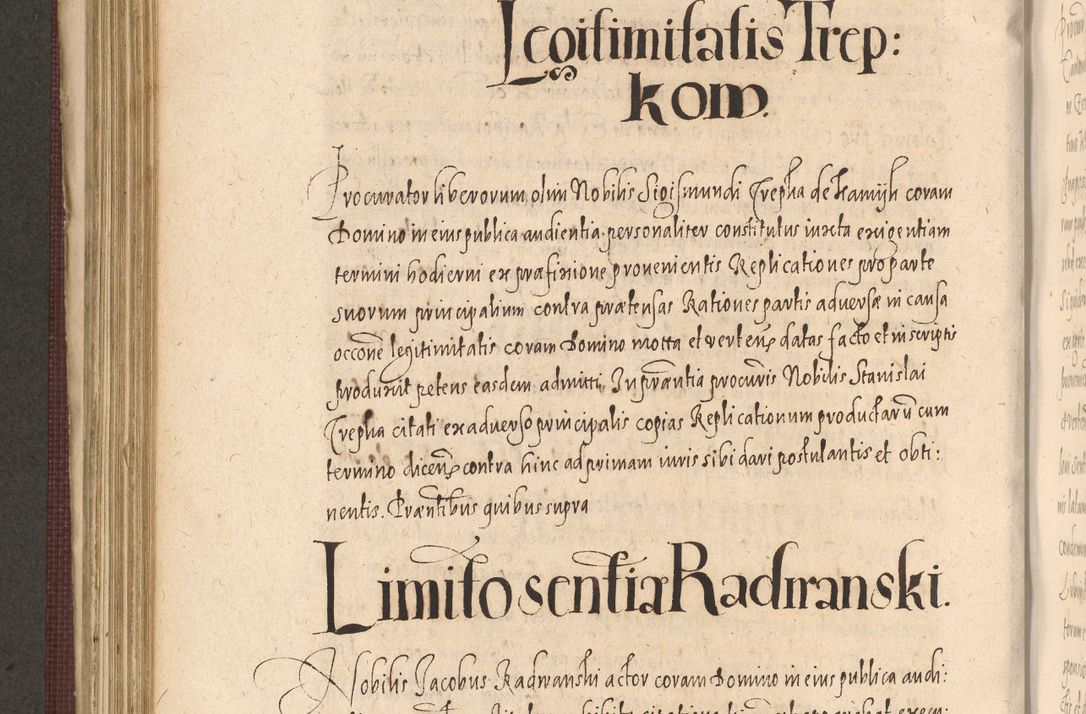 Legitimitatis Trep:
kom.
Procurator liberorum olim Nobilis Sigismundi Trepka de Kamijk coram
Domino in eius publica audientia personaliter constitutus iuxta exigentiam
termini hodierni ex præfixione provenientis Replicationes pro parte
suorum principalium contra prætensas Rationes partis adversæ in causa
occone legitimitatis coram Domino motta et verten: datas facto et in scriptis
produxit petens easdem admitti. In præntia procuris Nobilis Stanislai
Trepka citati ex adverso principalis copias Replicationum productarū cum
termino dicen: contra hinc ad primam iuris sibi dari postulantis et obti:
nentis. Præntibus quibus supra
Limito sentia Radwanski.
Nobilis Jacobus Radwanski actor coram Domino in eius publica audi: